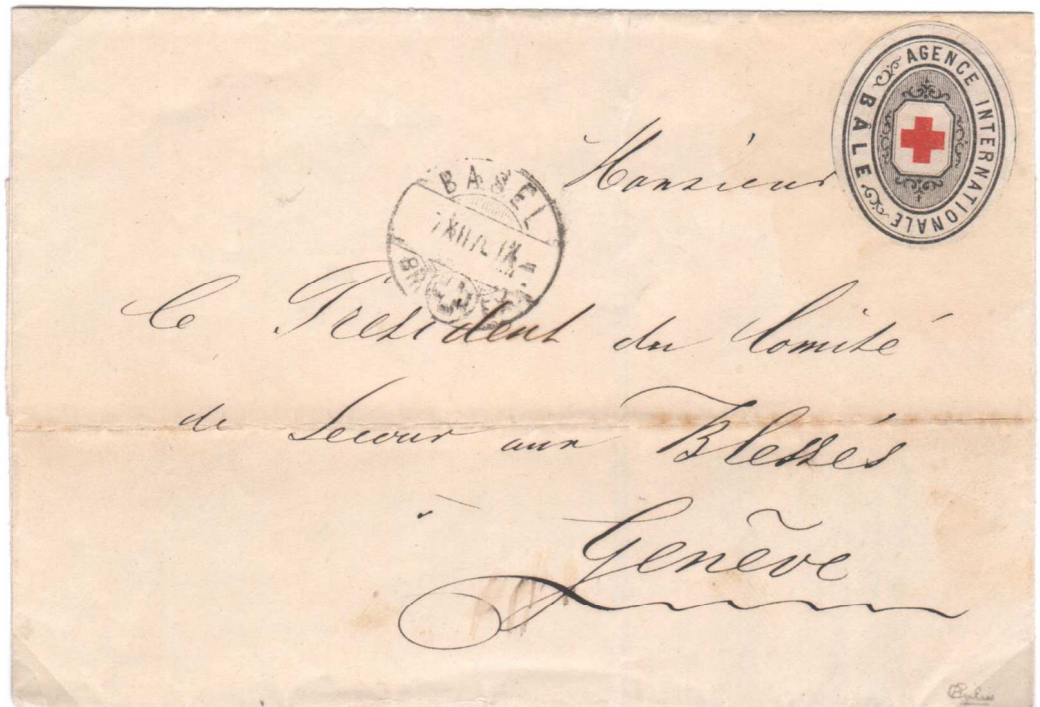 AGENCE INTERNATIONALE
BÂLE
BASEL
7 XII 7
Monsieur
Le President du Comité
de Secour aux Blessés
à
Genève